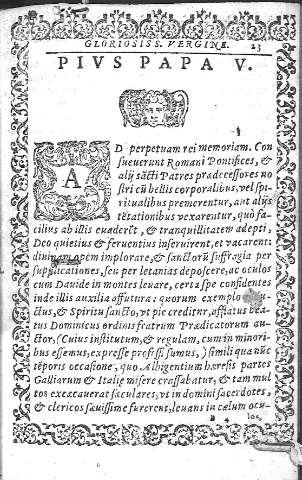 GLORIOSISS. VERGINÆ. 23
PIVS PAPA V.
AD perpetuam rei memoriam. Con
sueuerunt Romani Pontifices, &
alij sācti Patres prædecessores no
stri cū bellis corporalibus, vel spi-
ritualibus premerentur, aut alijs
tētationibus vexarentur, quò fa-
cilius ab illis euaderēt, & tranquillitatem adepti,
Deo quietius & feruentius inseruirent, et vacarent:
diuinam opem implorare, & sanctorū suffragia per
supplicationes, seu per letanias deposcere, ac oculos
cum Dauide in montes leuare, certa spe confidentes
inde illis auxilia affutura: quorum exemplo
ctus, & Spiritu sancto, vt pie creditur, afflatus bea-
tus Dominicus ordinis fratrum Prædicatorum au-
ctor, (Cuius institutum, & regulam, cum in minori-
bus essemus, expresse professi sumus,) simili qua nūc
tēporis occasione, quo Albigentium hæresis partes
Galliarum & Italię misere crassabatur, & tam mul
tos excæcauerat sæculares, vt in domini sacerdotes,
& clericos sæuissime furerent, leuans in cælum ocu-
B 4 los,